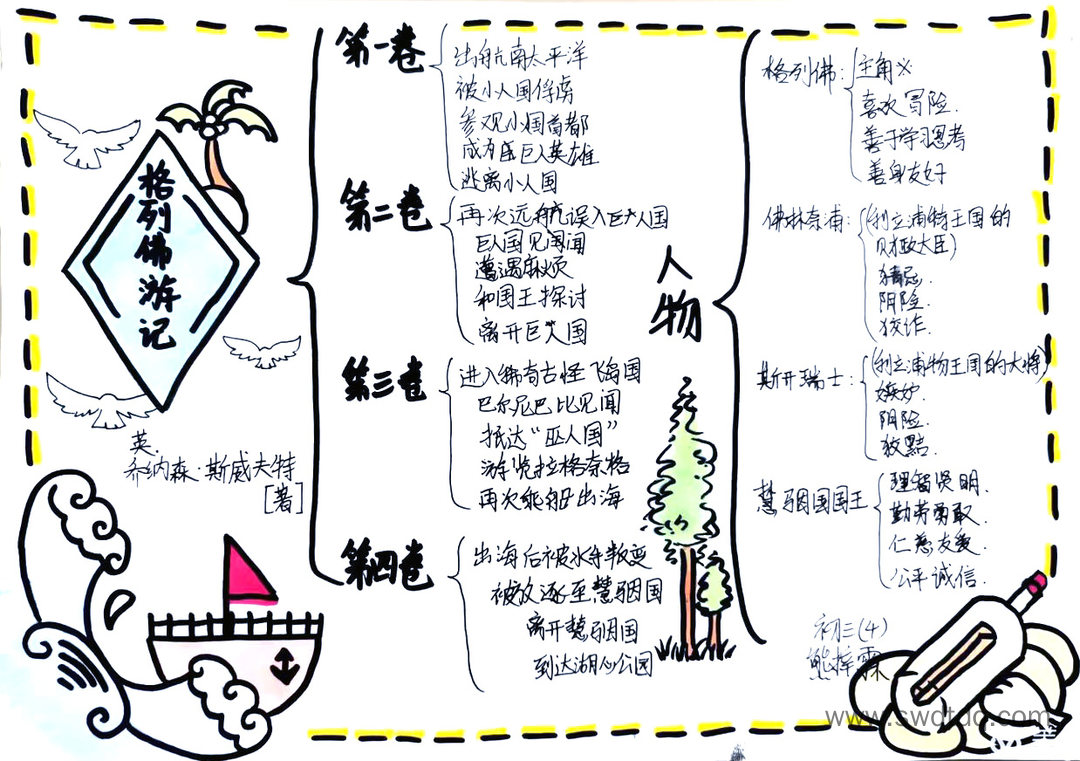 格列佛游记
英.
乔纳森·斯威夫特
[著]
第一卷
出航南太平洋
被小人国俘虏
参观小国首都
成为国巨人英雄
逃离小人国
第二卷
再次远航误入巨人国
巨人国见闻
遭遇麻烦
和国王探讨
离开巨人国
第三卷
进入稀奇古怪飞岛国
巴尔尼巴比见闻
抵达“巫人国”
游览拉格奈格
再次乘船出海
第四卷
出海后被水手叛变
被放逐至慧骃国
离开慧骃国
到达湖心公园
人物
格列佛:
主角※
喜欢冒险.
善于学习思考
善身友好
佛林奈浦:
(利立浦特王国的
财政大臣)
猜忌.
阴险.
狡诈.
斯开瑞士:
(利立浦物王国的大将)
嫉妒.
阴险.
狡黠.
慧骃国国王
理智贤明.
勤劳勇敢.
仁慈友爱.
公平诚信.
初三(4)
熊梓霖
www.swdtdq.com